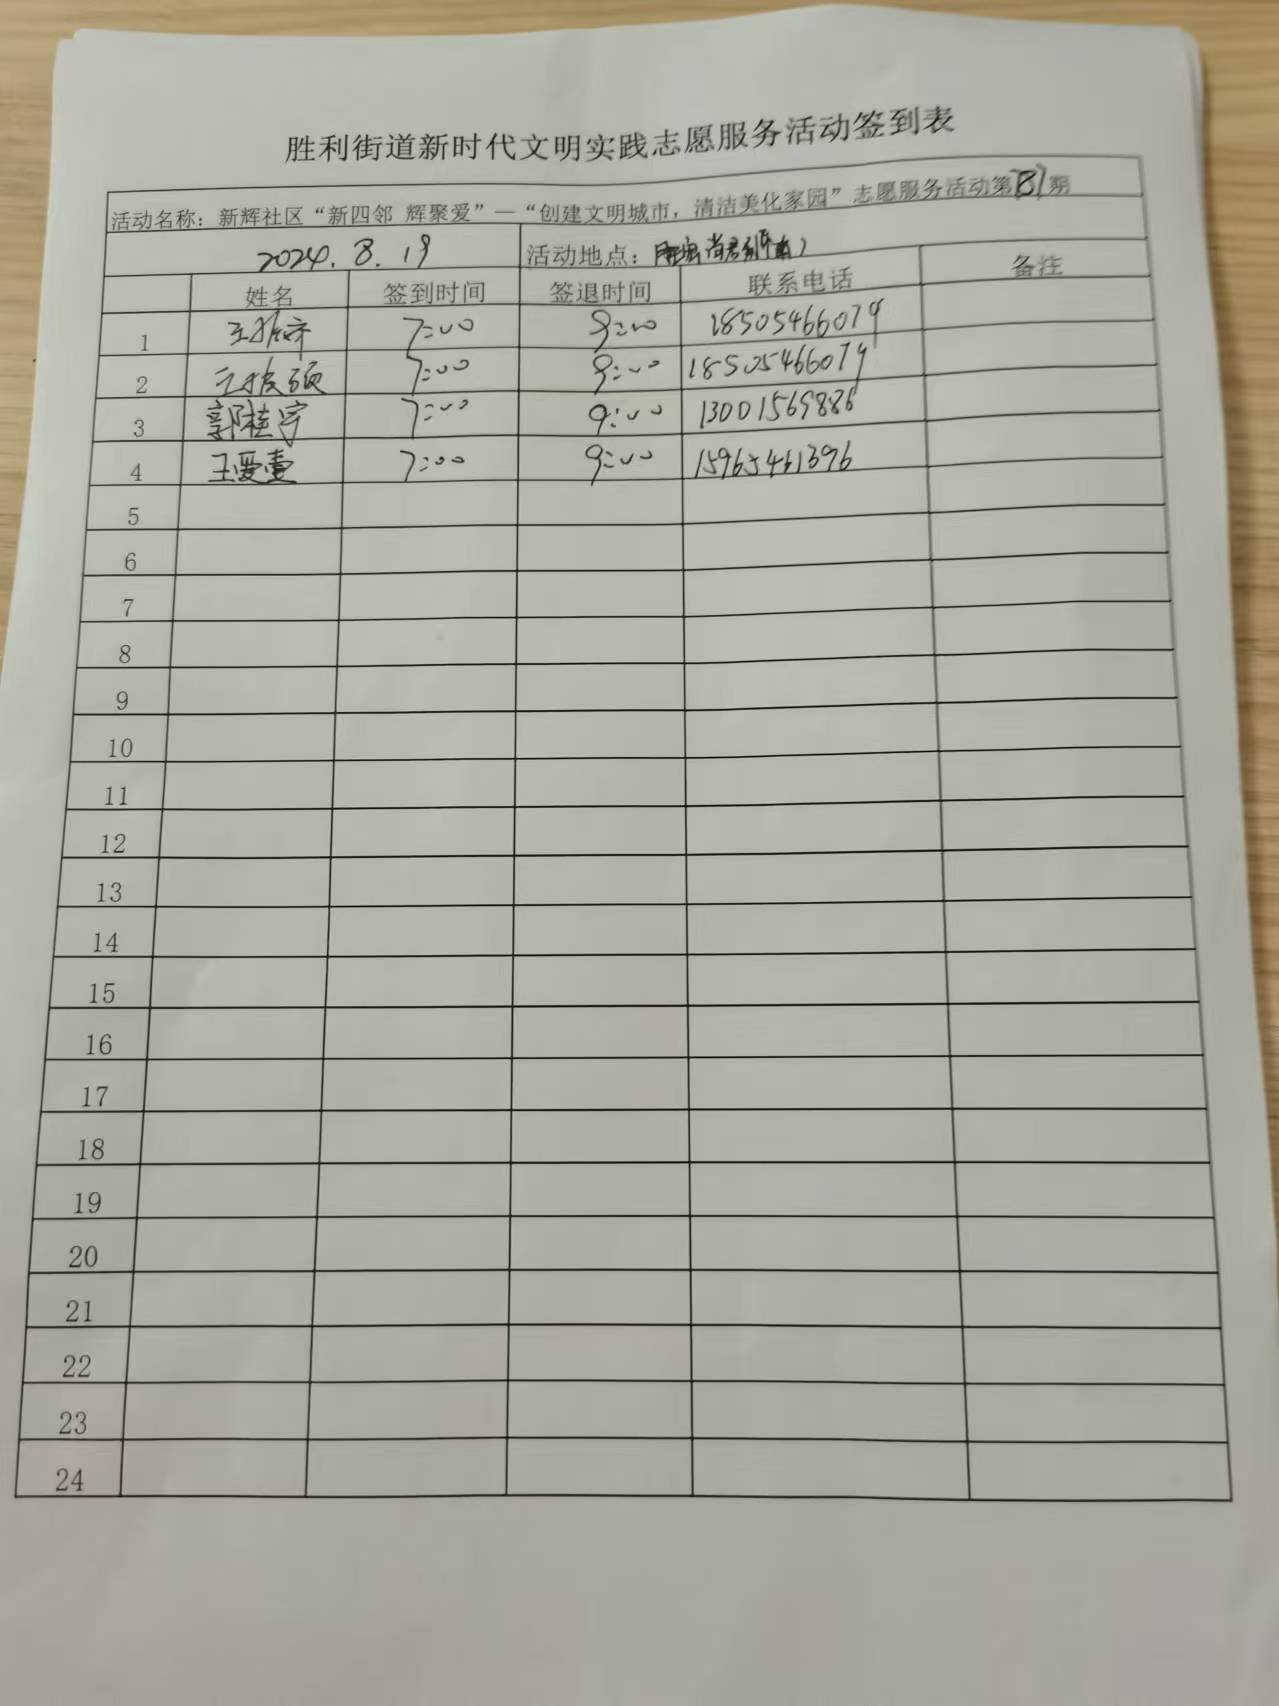 胜利街道新时代文明实践志愿服务活动签到表
活动名称：新辉社区“新四邻 辉聚爱”—“创建文明城市，清洁美化家园”志愿服务活动第 期
2024.8.19 活动地点：
姓名 签到时间 签退时间 联系电话 备注
1 7:00 9:00 18505466079
2 7:00 9:00 18505466079
3 郭桂宇 7:00 9:00 13001569886
4 王爱 7:00 9:00 15965461396
5
6
7
8
9
10
11
12
13
14
15
16
17
18
19
20
21
22
23
24